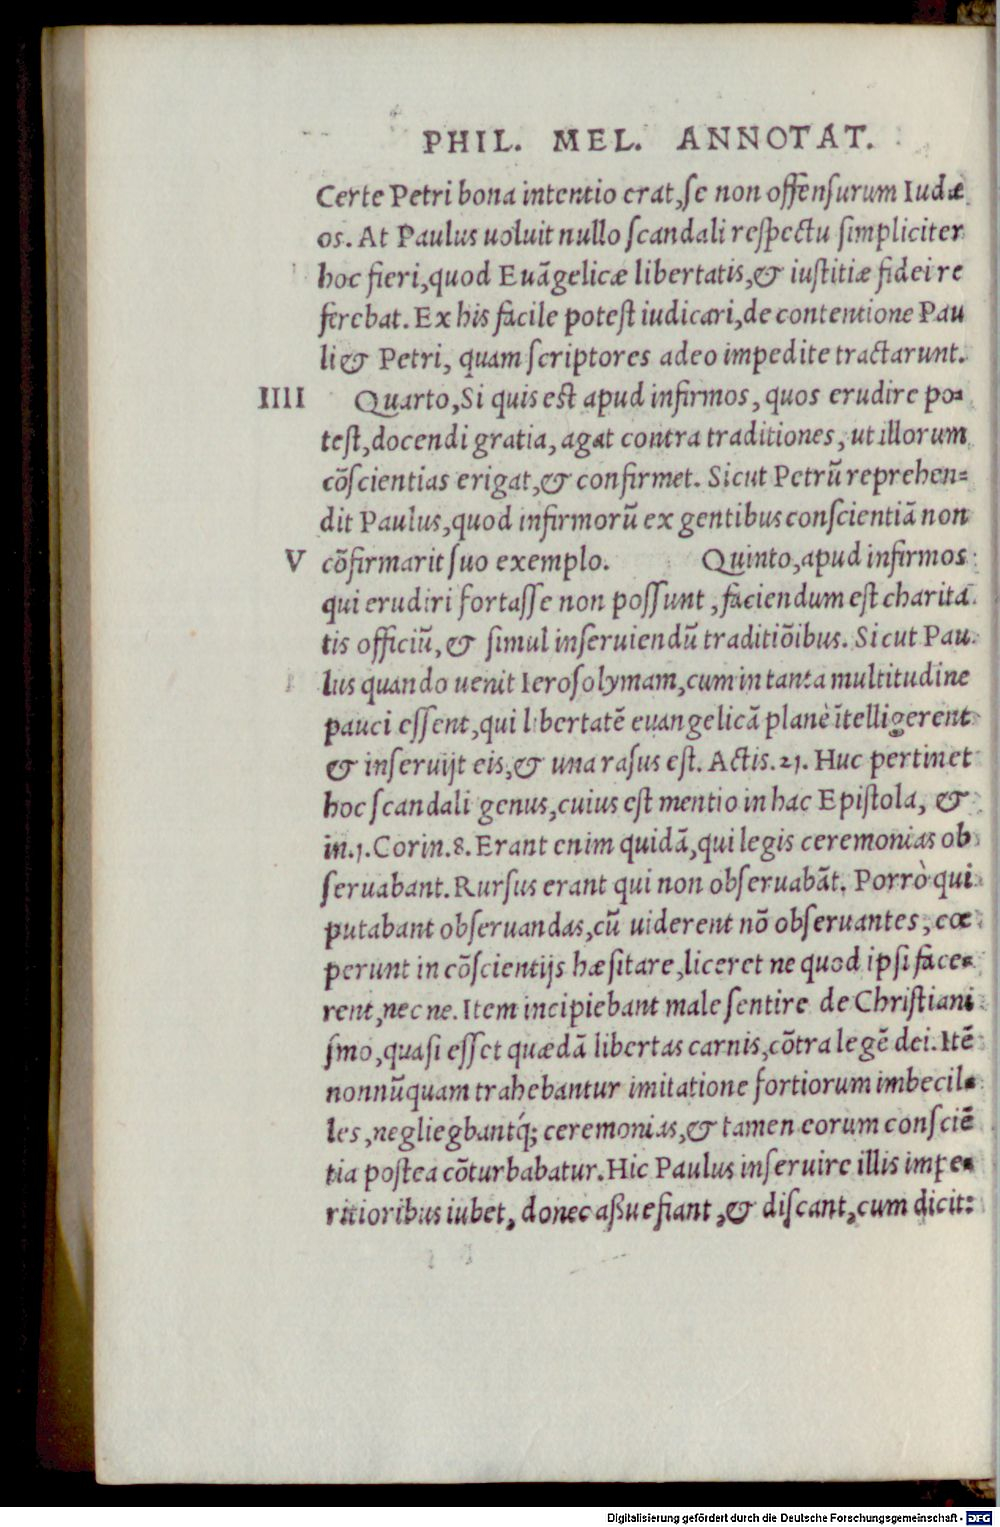 PHIL. MEL. ANNOTAT.
Certe Petri bona intentio erat, se non offensurum Iudæ
os. At Paulus uoluit nullo scandali respectu simpliciter
hoc fieri, quod Euãgelicæ libertatis, & iustitiæ fidei re
ferebat. Ex his facile potest iudicari, de contentione Pau
li & Petri, quam scriptores adeo impedite tractarunt.
IIII Quarto, Si quis est apud infirmos, quos erudire po-
test, docendi gratia, agat contra traditiones, ut illorum
cõscientias erigat, & confirmet. Sicut Petrũ reprehen-
dit Paulus, quod infirmorũ ex gentibus conscientiã non
V cõfirmarit suo exemplo. Quinto, apud infirmos
qui erudiri fortasse non possunt, faciendum est charita
tis officiũ, & simul inseruiendũ traditiõibus. Sicut Pau
lus quando uenit Ierosolymam, cum in tanta multitudine
pauci essent, qui libertatẽ euangelicã planè ĩtelligerent
& inseruijt eis, & una rasus est. Actis. 21. Huc pertinet
hoc scandali genus, cuius est mentio in hac Epistola, &
in. 1. Corin. 8. Erant enim quidã, qui legis ceremonias ob
seruabant. Rursus erant qui non obseruabãt. Porrò qui
putabant obseruandas, cũ uiderent nõ obseruantes, cœ
perunt in cõscientijs hæsitare, liceret ne quod ipsi face-
rent, nec ne. Item incipiebant male sentire de Christiani
smo, quasi esset quædã libertas carnis, cõtra legẽ dei. Itẽ
nonnũquam trahebantur imitatione fortiorum imbecil-
les, negliegbantq́; ceremonias, & tamen eorum consciẽ
tia postea cõturbabatur. Hic Paulus inseruire illis impe-
ritioribus iubet, donec aßuefiant, & discant, cum dicit:
Digitalisierung gefördert durch die Deutsche Forschungsgemeinschaft - DFG